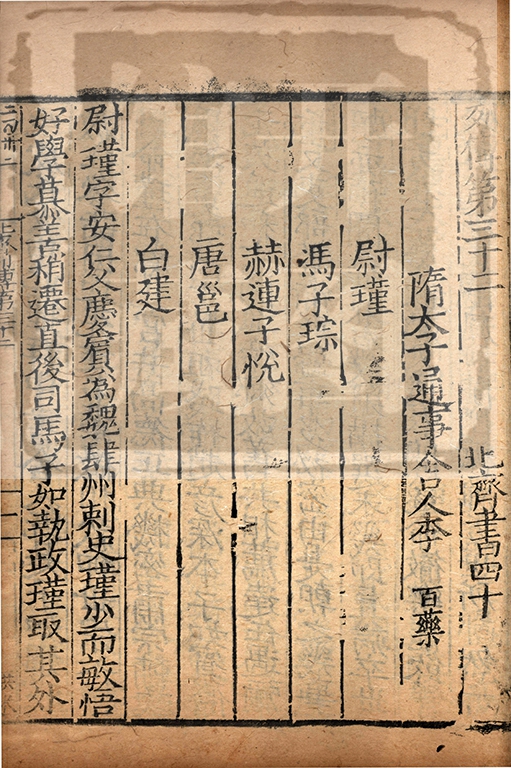 列傳第三十二 北齊書四十
隋太子通事舍人李 百藥
尉瑾
馮子琮
赫連子悅
唐邕
白建
尉瑾字安仁父慶賔為魏肆州刺史瑾少而敏悟
好學慕善稍遷直後司馬子如執政瑾取其外